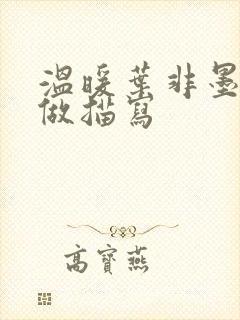 溫暖葉非墨
做描寫
高寶燕